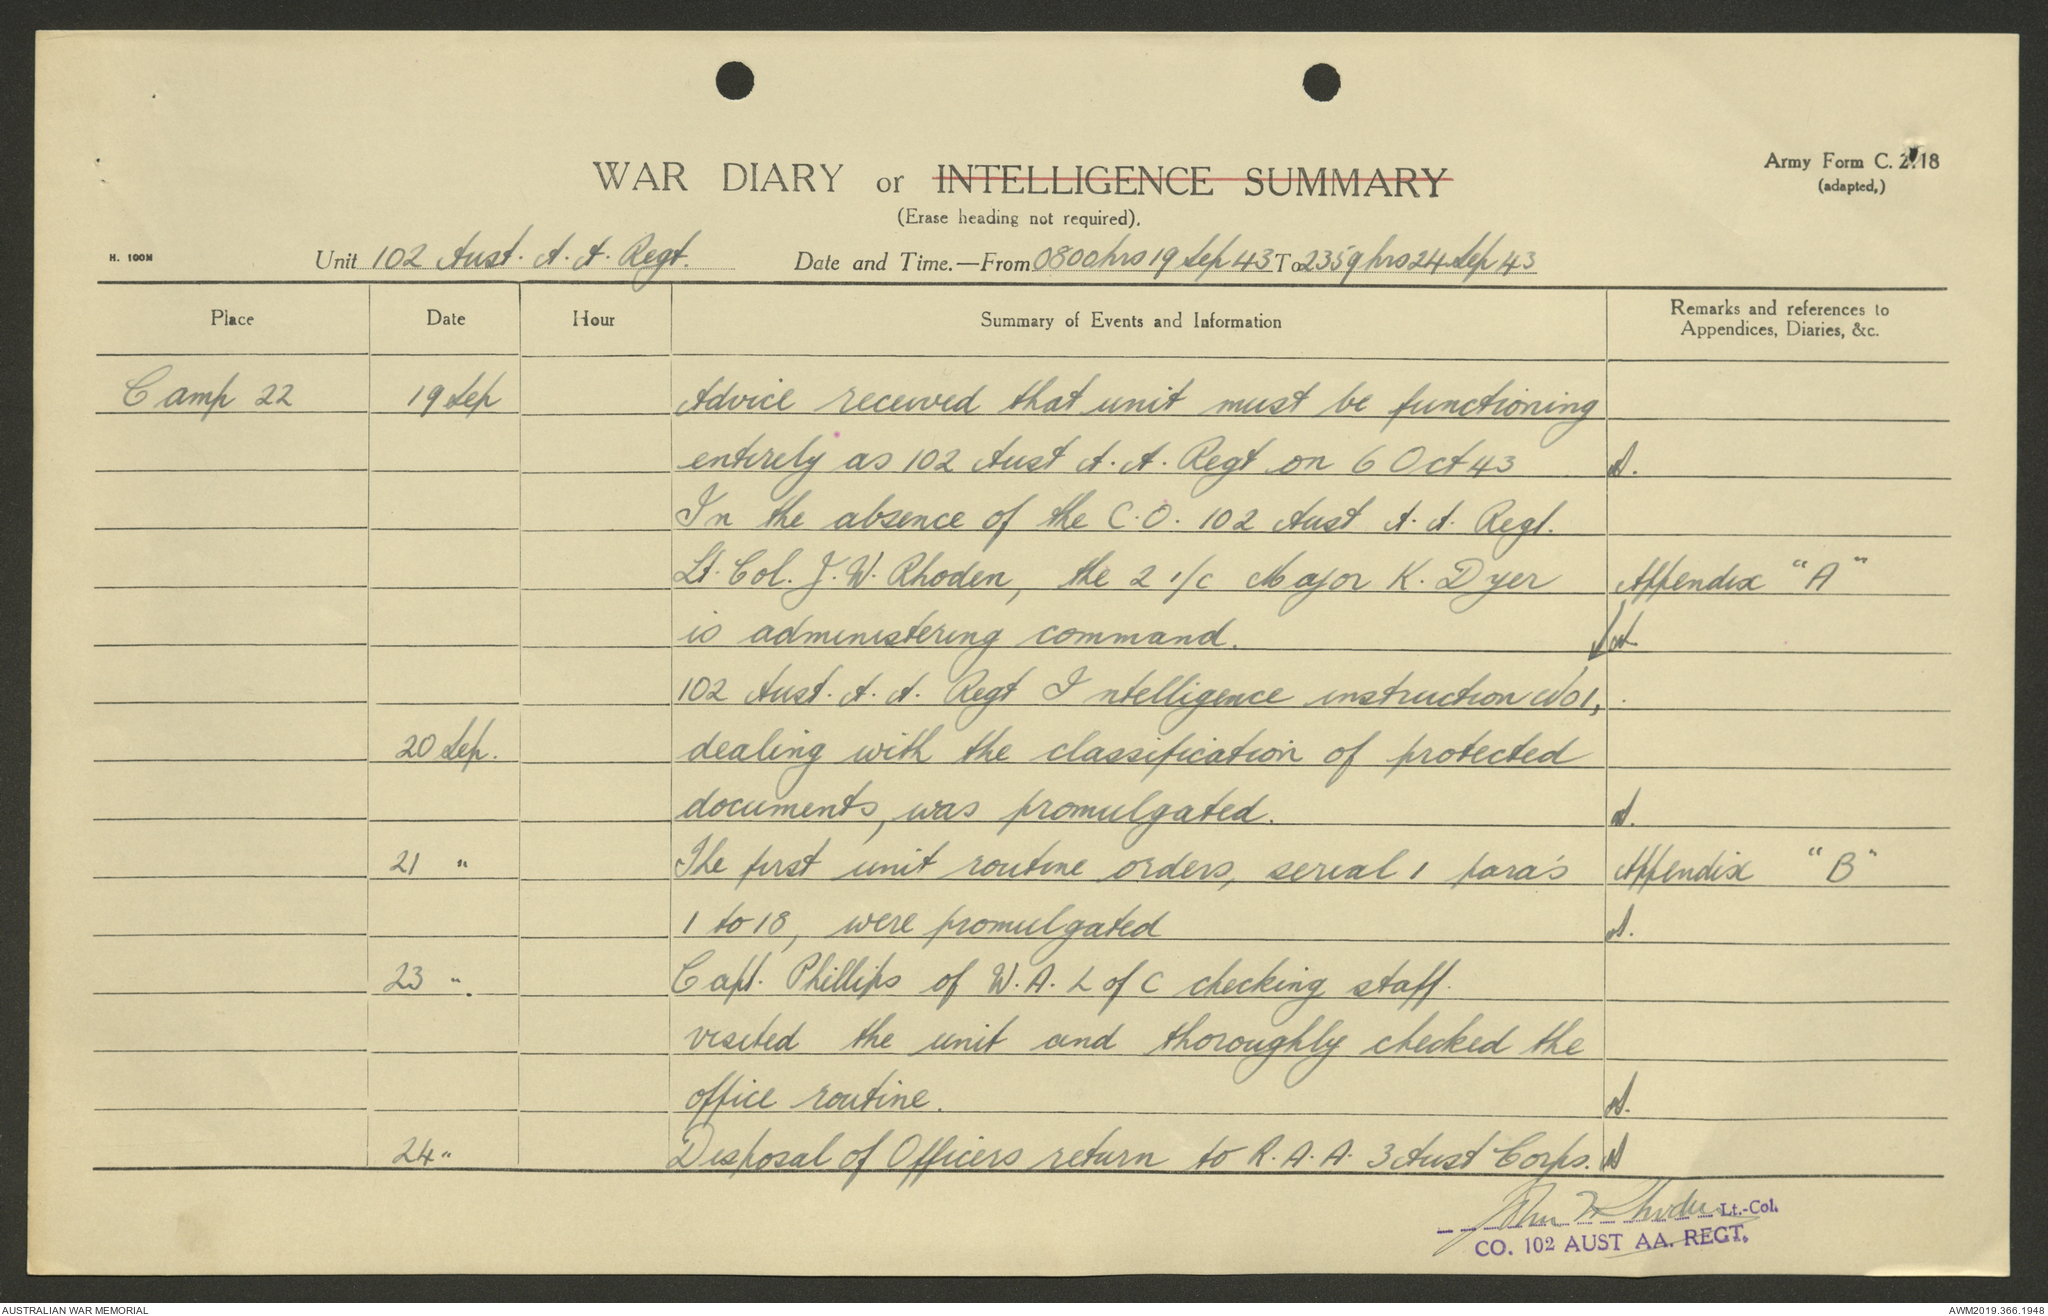 WAR DIARY or INTELLIGENCE SUMMARY
(Erase heading not required).
Army Form C. 2118
(adapted,)
H. 100M
Unit 102 Aust. A. A. Regt. Date and Time.—From 0800hrs 19 Sep 43 To 2359hrs 24 Sep 43
Place Date Hour Summary of Events and Information Remarks and references to
Appendices, Diaries, &c.
Camp 22 19 Sep Advice received that unit must be functioning
entirely as 102 Aust A. A. Regt on 6 Oct 43
In the absence of the C.O. 102 Aust A. A. Regt.
Lt. Col. J. W. Rhoden, the 2 i/c Major K. Dyer Appendix "A"
is administering command.
102 Aust. A. A. Regt Intelligence instruction No 1,
20 Sep. dealing with the classification of protected
documents, was promulgated.
21 " The first unit routine orders, serial 1 para's Appendix "B"
1 to 18, were promulgated
23 ". Capt. Phillips of W. A. L of C checking staff.
visited the unit and thoroughly checked the
office routine.
24 " Disposal of Officers return to R. A. A. 3 Aust Corps.
John W Rhoden Lt.-Col.
CO. 102 AUST AA. REGT.
AUSTRALIAN WAR MEMORIAL
AWM2019.366.1948